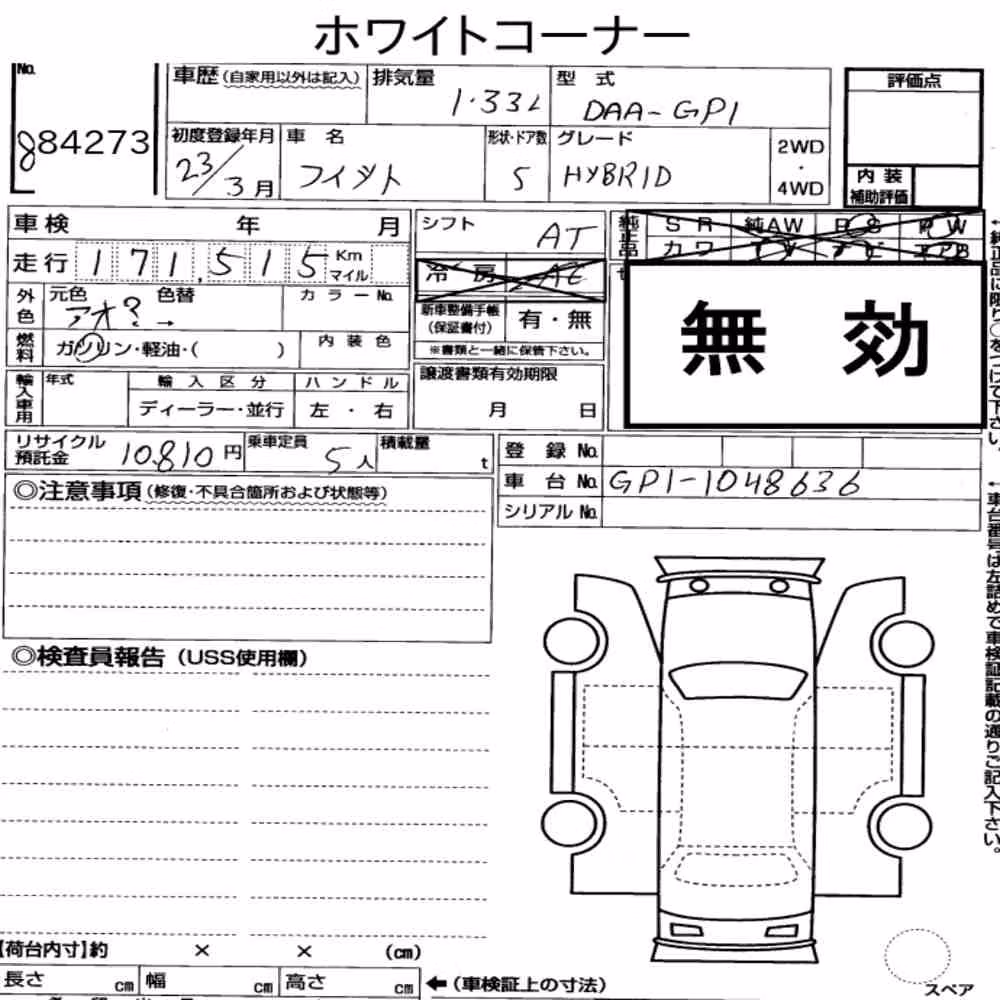 ホワイトコーナー
No.
84273
車歴(自家用以外は記入)
排気量
1.33L
型 式
DAA-GP1
評価点
初度登録年月
23/3月
車 名
フィット
形状・ドア数
5
グレード
HYBRID
2WD
・
4WD
内 装
補助評価
車検 年 月
シフト
AT
純正品
S R 純AW P S P W
カワ
走行 171,515 Km
マイル
冷 房 AC
外色
元色 色替 カラーNo.
アオ? →
新車整備手帳
(保証書付)
有・無
※書類と一緒に保管下さい。
無 効
燃料
ガソリン・軽油・( )
内 装 色
輸入車用
年式
輸 入 区 分
ハ ン ド ル
ディーラー・並行
左 ・ 右
譲渡書類有効期限
月 日
リサイクル
預託金
10,810 円
乗車定員
5人
積載量
t
登 録 No.
車 台 No. GP1-1048636
シリアル No.
◎注意事項(修復・不具合箇所および状態等)
◎検査員報告(USS使用欄)
【荷台内寸】約 × × (cm)
長さ cm 幅 cm 高さ cm
←(車検証上の寸法)
スペア
←純正品に限り○をつけて下さい。
←車台番号は左詰めで車検証記載の通りご記入下さい。